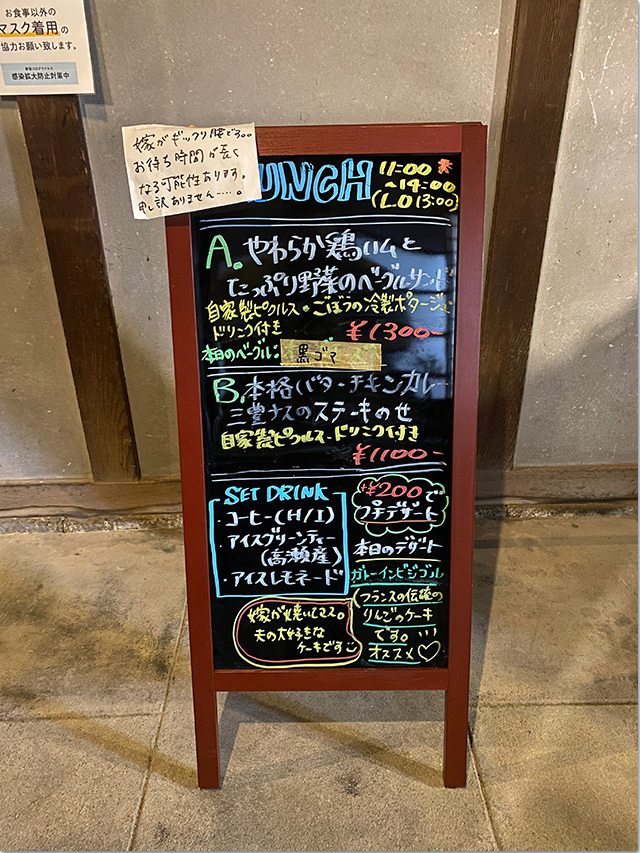 お食事以外の
マスク着用の
協力お願い致します。
新型コロナウイルス
感染拡大防止対策中
嫁がギックリ腰です。。。
お待ち時間が長く
なる可能性あります。
申し訳ありません……。
LUNCH
11:00
~14:00
(L.O 13:00)
A. やわらか鶏ハムと
たっぷり野菜のベーグルサンド
自家製ピクルス・ごぼうの冷製ポタージュ
ドリンク付き
¥1300-
本日のベーグル:
黒ゴマ
B. 本格バターチキンカレー
三豊ナスのステーキのせ
自家製ピクルス・ドリンク付き
¥1100-
SET DRINK
・コーヒー(H/I)
・アイスグリーンティー
(高瀬産)
・アイスレモネード
+¥200で
プチデザート
本日のデザート
ガトーインビジブル
(フランスの伝統の
りんごのケーキ
です。
オススメ♡
嫁が焼いてマス。
夫の大好きな
ケーキです